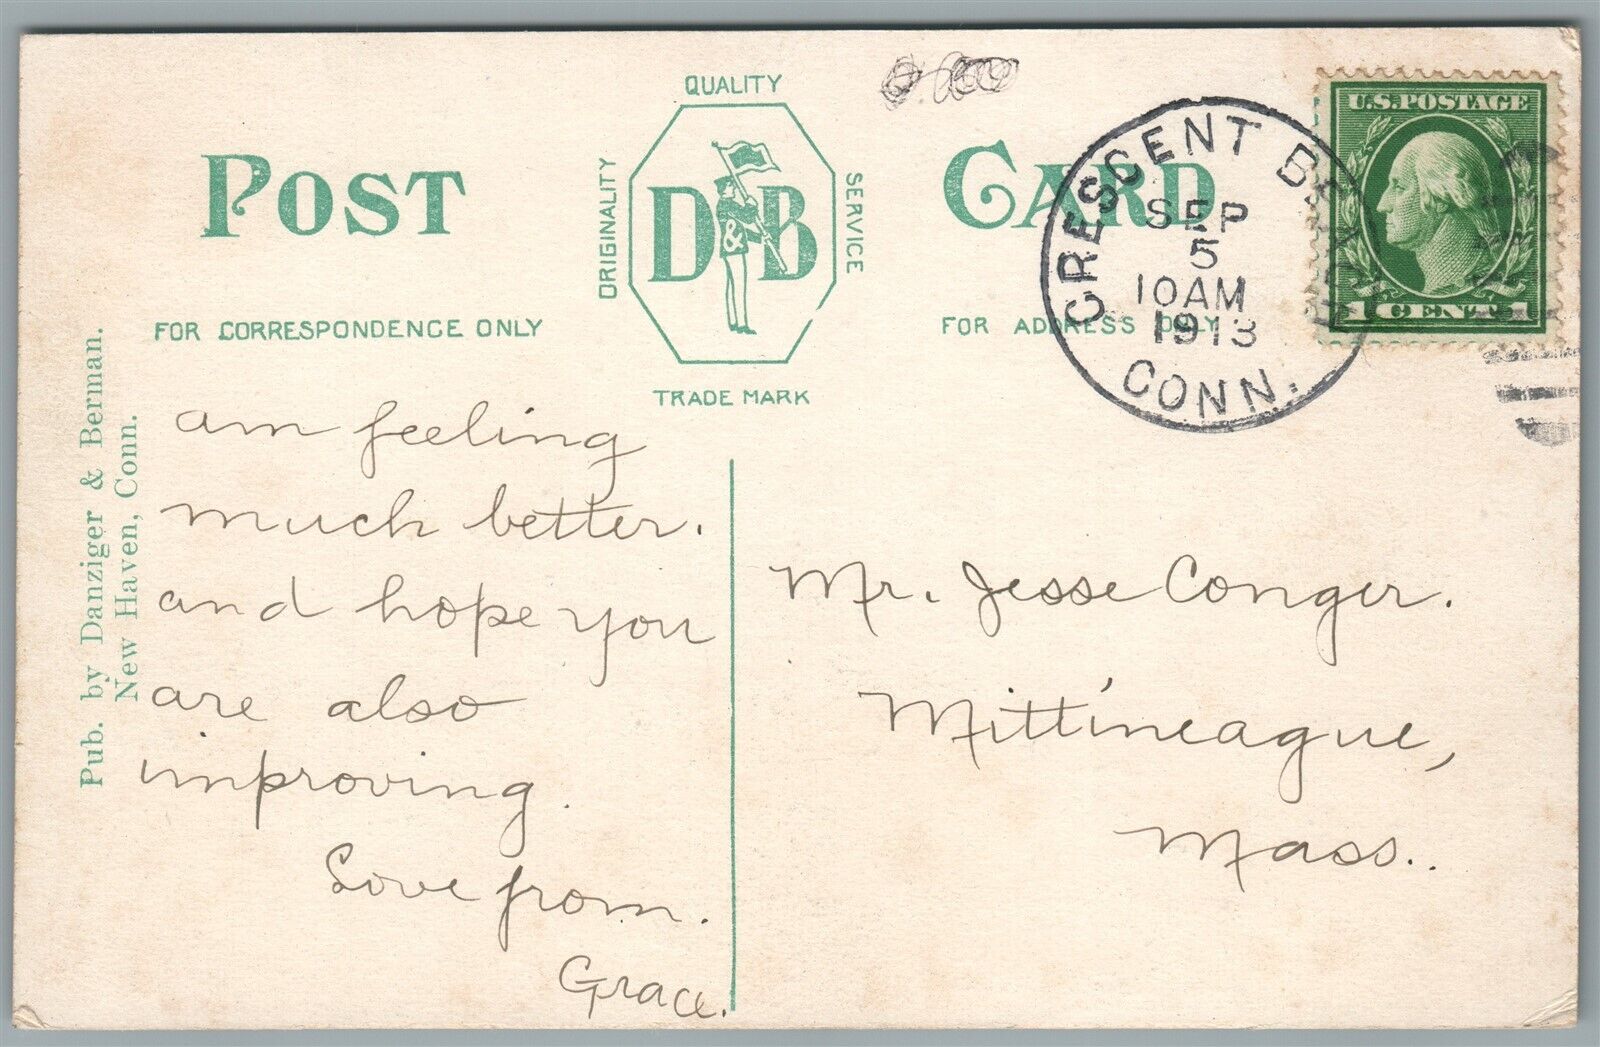 QUALITY
POST CARD
ORIGINALITY
D&B
SERVICE
TRADE MARK
FOR CORRESPONDENCE ONLY
FOR ADDRESS ONLY
CRESCENT BEACH
SEP
5
10AM
1913
CONN.
U.S. POSTAGE
1 CENT 1
Pub. by Danziger & Berman.
New Haven, Conn.
am feeling
much better.
and hope you
are also
improving.
Love from.
Grace.
Mr. Jesse Conger.
Mittineague,
Mass..